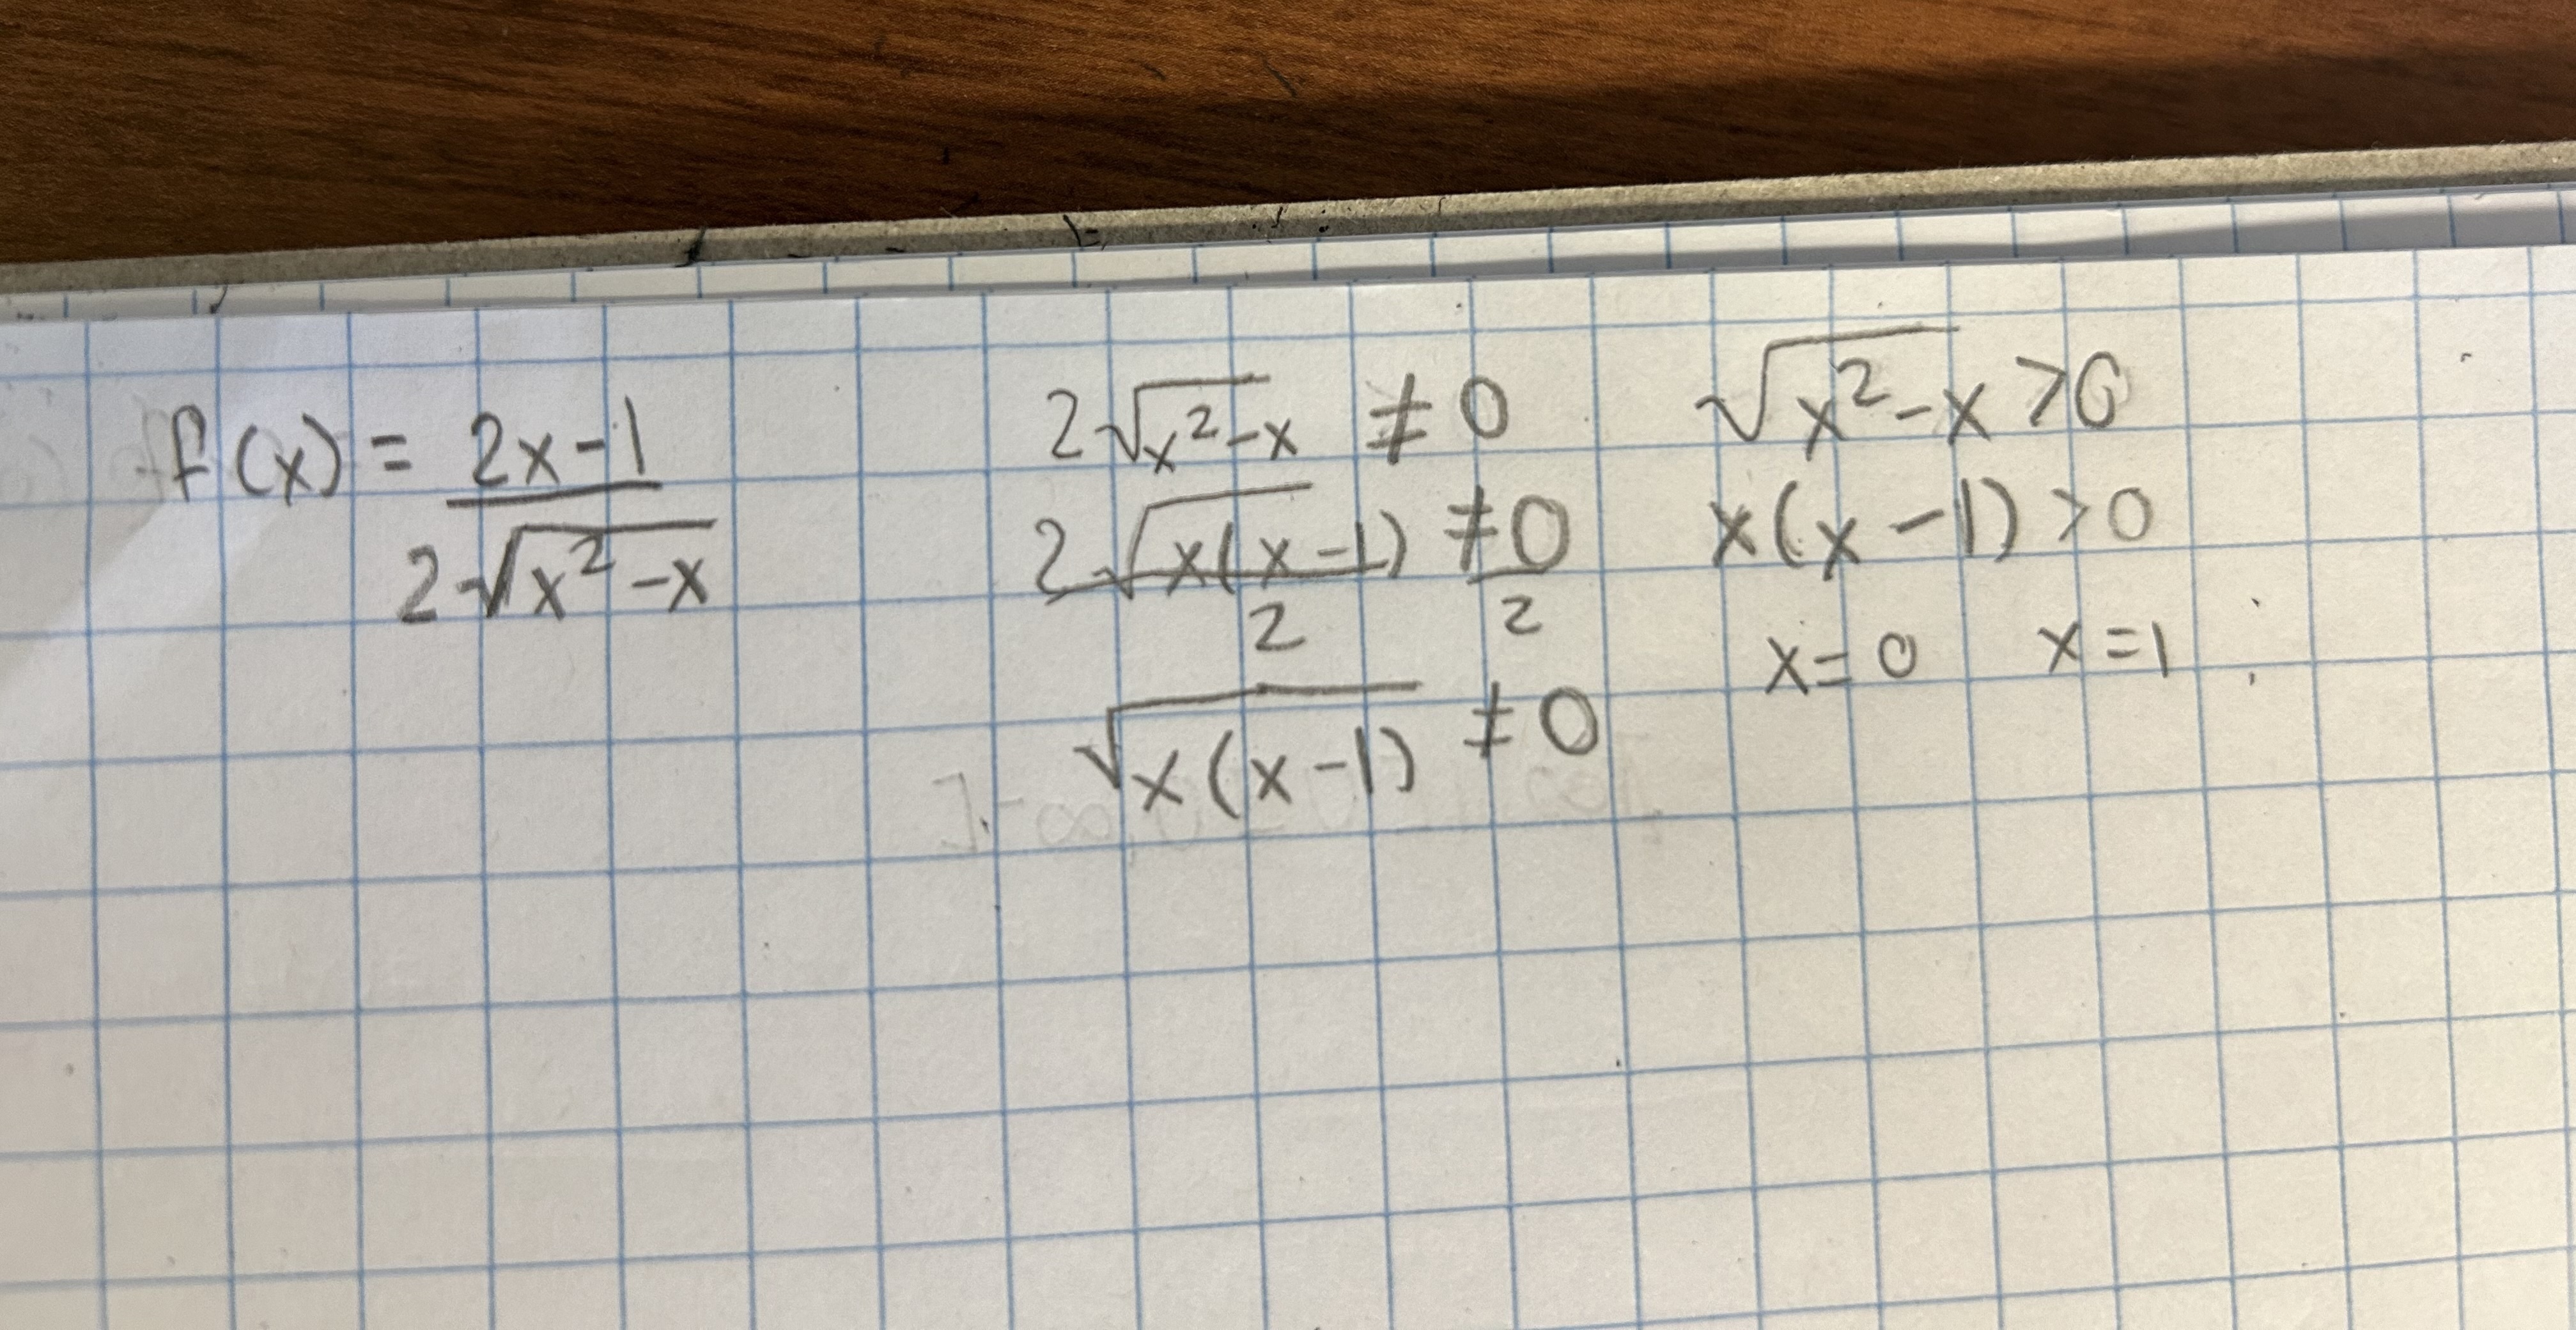 f(x) = 2x-1
2√x²-x
2√x²-x ≠ 0
2√x(x-1) ≠0
2 2
√x(x-1) ≠0
√x²-x >0
x(x-1) >0
x=0 x=1